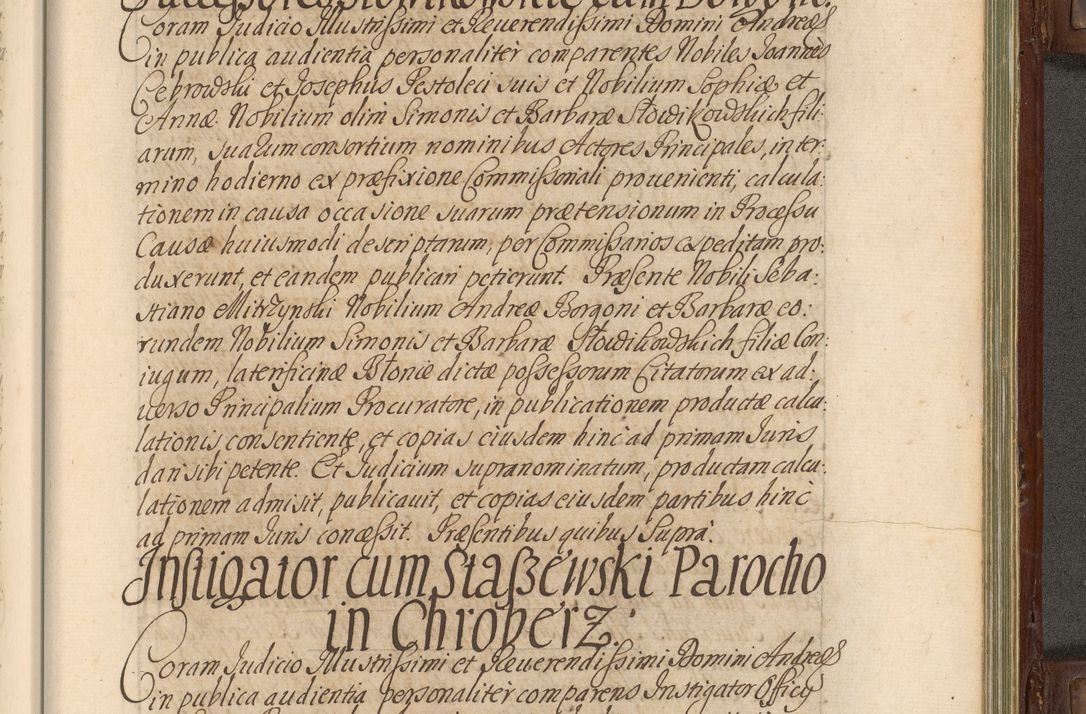 Coram Judicio Illustrissimi et Reuerendissimi Domini Andreæ
in publica audientia personaliter comparentes Nobiles Joannes
Cebrowski et Josephus Pestoleci suis et Nobilium Sophiæ et
Annæ Nobilium olim Simonis et Barbaræ Słowikowskich fili:
arum, suarum consortium nominibus Actores Principales, in ter:
mino hodierno ex præfixione Commissoriali prouenienti, calcula:
tionem in causa occasione suarum prætensionum in Processu
Causæ huiusmodi descriptarum, per Commissarios expeditam pro:
duxerunt, et eandem publicari petierunt. Præsente Nobili Seba:
stiano Mirzynski Nobilium Andreæ Borgoni et Barbaræ eo:
rundem Nobilium Simonis et Barbaræ Słowikowskich filiæ Con:
iugum, laterificinæ Błonie dictæ possessorum Citatorum ex ad:
uerso Principalium Procuratore, in publicationem productæ calcu:
lationis consentiente, et copias eiusdem hinc ad primam Juris
dari sibi petente. Et Judicium supranominatum, productam calcu:
lationem admisit, publicauit, et copias eiusdem partibus hinc
ad primam Juris concessit. Præsentibus quibus Supra.
Instigator cum Staszewski Parocho
in Chroberz.
Coram Judicio Illustrissimi et Reuerendissimi Domini Andreæ
in publica audientia personaliter comparens Instigator Officij